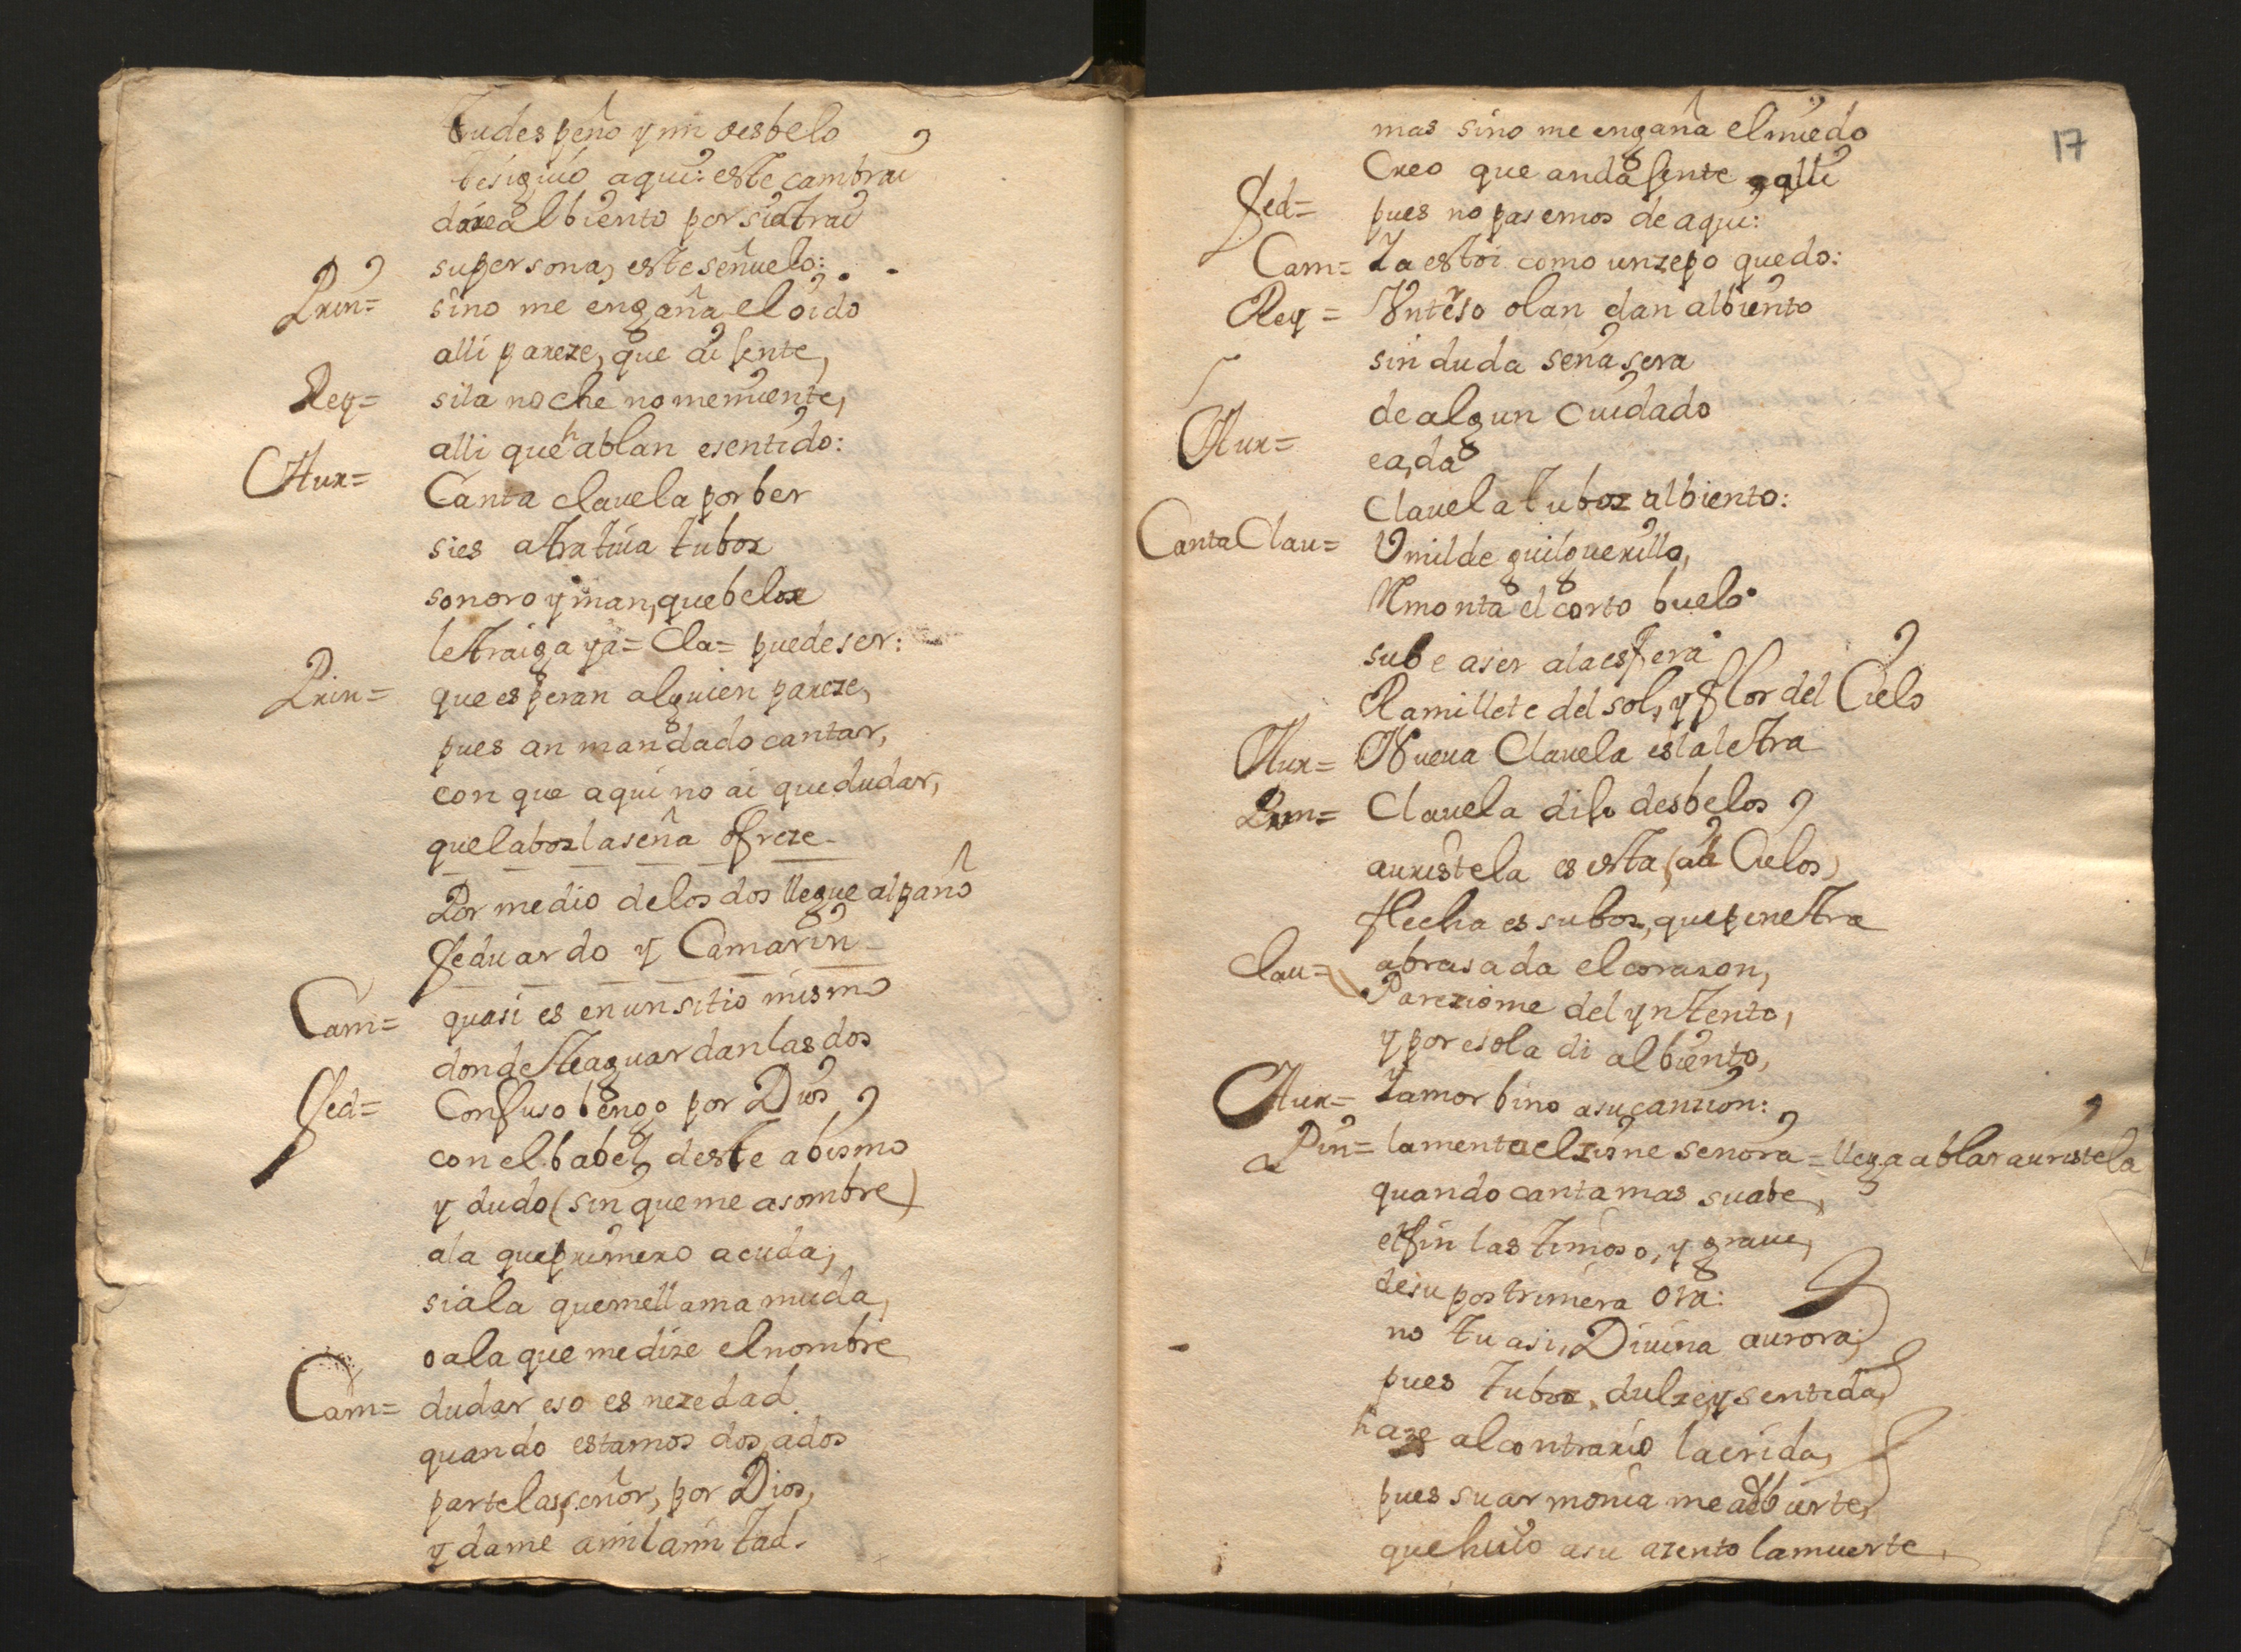 tudespeño y mi desbelo
tesiguio aqui: este cambrai
dare albiento por si atrai
supersona, este señuelo:
Prin= sino me engaña el oido
alli pareze, que ai Jente,
Rey= sila noche nomemiente,
alli que hablan esentido:
Aur= Canta clauela por ber
sies atratiua tuboz
sonoro yman, quebeloz
letraiga ya= Cla= puedeser:
Prin= que esperan alguien pareze,
pues an mandado cantar,
con que aqui no ai quedudar,
quelabozlaseña ofreze
Por medio delos dos llegue alpaño
Seduardo y Camarin
Cam= quasi es enunsitio mismo
donde teaguardanlasdos
Sed= Confuso bengo por Dios
conelbabel deste abismo
y dudo (sin queme asombre)
ala queprimero acuda,
siala quemellama muda,
oala que medize elnombre
Cam= dudar eso es nezedad
quando estamos dos ados
partelas, señor, por Dios,
y dame amilamitad.
17
mas sino me engaña elmiedo
Creo que anda Jente alli
Sed= pues no pasemos de aqui:
Cam= Ya estoi como unzepo quedo:
Rey= Vnterso olan dan albiento
sin duda seña sera
dealgun Cuidado
Aur= ea, da
Clauela tuboz albiento:
Canta Clau= Vmilde guilguerillo,
Rmonta el corto buelo
sube aser alaesfera
Ramillete del sol, y flor del Cielo
Aur= Nueua Clauela eslaletra
Prin= Clauela dijo desbelos
auristela es esta (ai Cielos)
flecha es suboz, quepenetra
abrasada elcorazon,
Clau= Pareziome del yntento,
y poresola di albiento,
Aur= Yamor bino asucanzion:
Prin= lamentaelzisne señora= llega ablar auristela
quando canta mas suabe,
elfin lastimoso, y graue,
desu postrimera ora:
no tu asi, Diuina aurora,
pues tuboz, dulze, y sentida,
haze alcontrario laerida,
pues suarmonia me adbierte,
quehuio asu azento lamuerte,